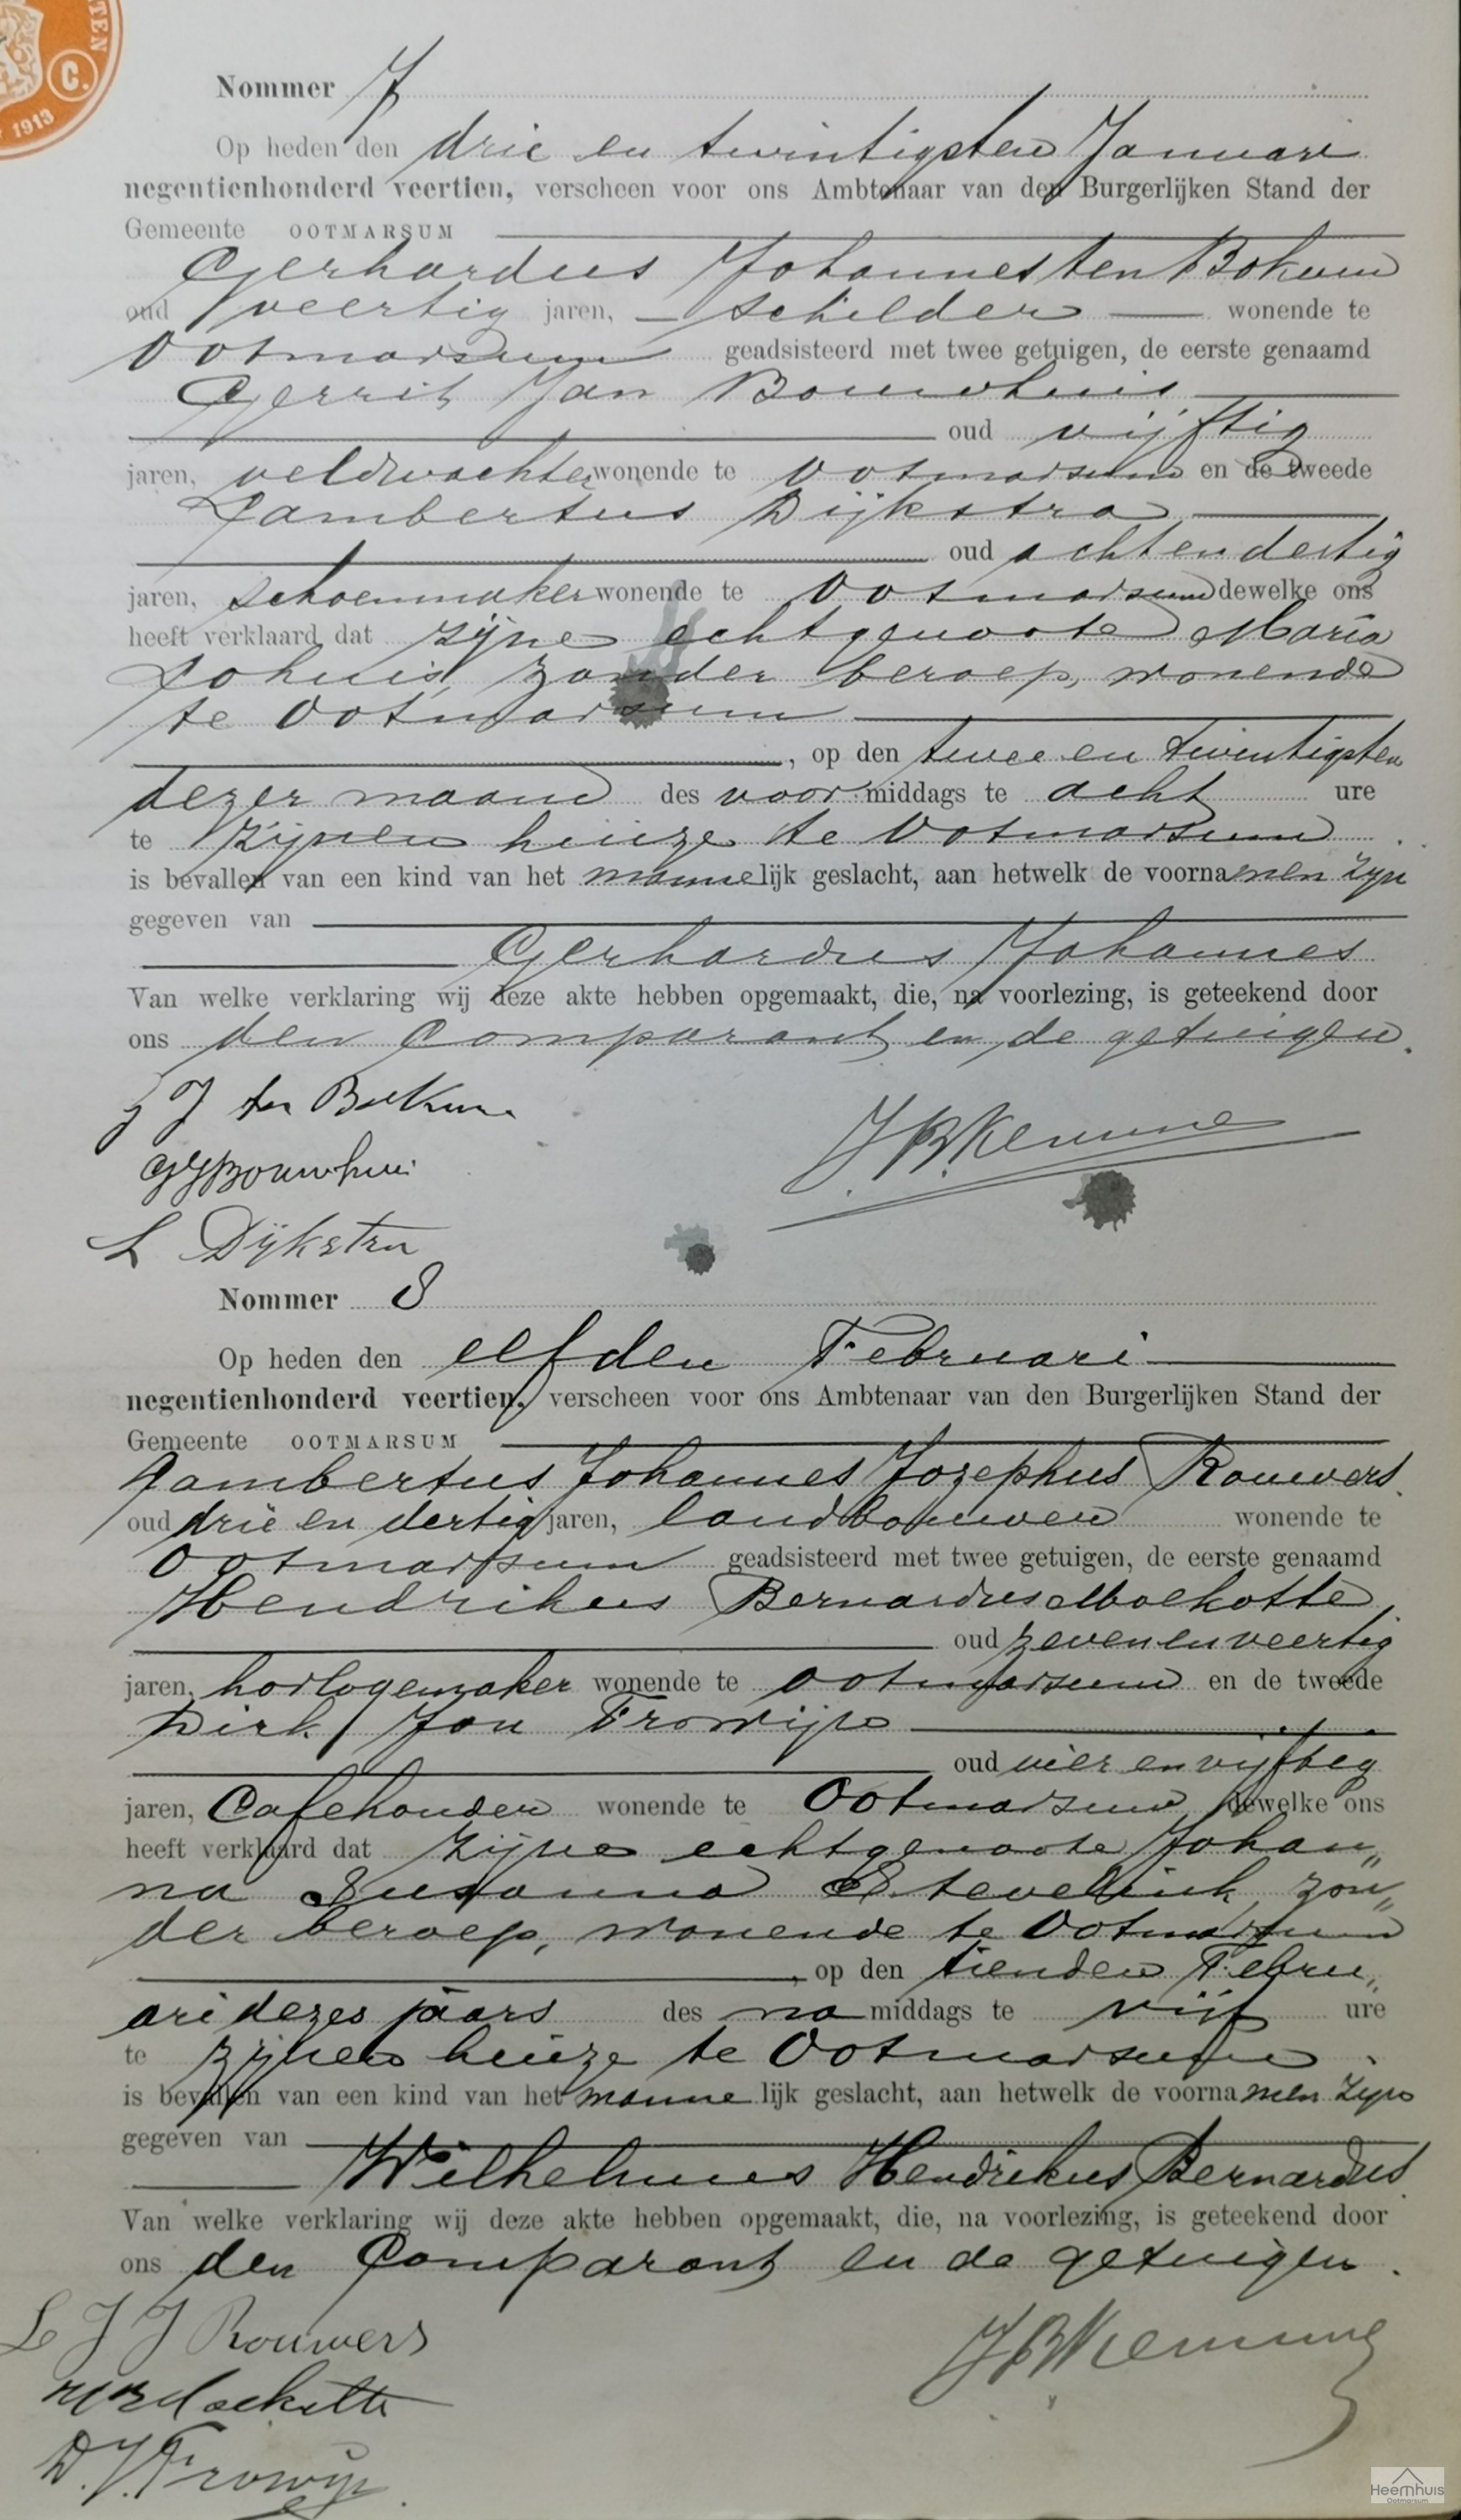 TEN
C.
1913
Nommer 7
Op heden den drie en twintigsten Januari
negentienhonderd veertien, verscheen voor ons Ambtenaar van den Burgerlijken Stand der
Gemeente OOTMARSUM
Gerhardus Johannes ten Bokum
oud veertig jaren, schilder wonende te
Ootmarsum geadsisteerd met twee getuigen, de eerste genaamd
Gerrit Jan Bouwhuis
oud vijftig
jaren, veldwachter wonende te Ootmarsum en de tweede
Lambertus Dijkstra
oud achtendertig
jaren, schoenmaker wonende te Ootmarsum dewelke ons
heeft verklaard dat zijne echtgenoote Maria
Lohuis, zonder beroep, wonende
te Ootmarsum
, op den twee en twintigsten
dezer maand des voor middags te acht ure
te zijnen huize te Ootmarsum
is bevallen van een kind van het mannelijk geslacht, aan hetwelk de voornamen zijn
gegeven van
Gerhardus Johannes
Van welke verklaring wij deze akte hebben opgemaakt, die, na voorlezing, is geteekend door
ons den Comparant en de getuigen.
G J ten Bokum
JBKemme
GJBouwhuis
L Dijkstra
Nommer 8
Op heden den elfden Februari
negentienhonderd veertien, verscheen voor ons Ambtenaar van den Burgerlijken Stand der
Gemeente OOTMARSUM
Lambertus Johannes Jozephus Rouwers
oud drie en dertig jaren, landbouwer wonende te
Ootmarsum geadsisteerd met twee getuigen, de eerste genaamd
Hendrikus Bernardus Moekotte,
oud zevenenveertig
jaren, horlogemaker wonende te Ootmarsum en de tweede
Dirk Jan Frowijn
oud vier en vijftig
jaren, Cafehouder wonende te Ootmarsum, dewelke ons
heeft verklaard dat zijne echtgenoote Johan„
na Susanna Stevelink, zon„
der beroep, wonende te Ootmarsum
, op den tienden Febru„
ari dezes jaars des na middags te vijf ure
te zijnen huize te Ootmarsum
is bevallen van een kind van het mannelijk geslacht, aan hetwelk de voornamen zijn
gegeven van
Wilhelmus Hendrikus Bernardus
Van welke verklaring wij deze akte hebben opgemaakt, die, na voorlezing, is geteekend door
ons den Comparant en de getuigen.
L J J Rouwers
JBKemme
HBMoekotte
D.J.Frowijn
Heemhuis
Ootmarsum